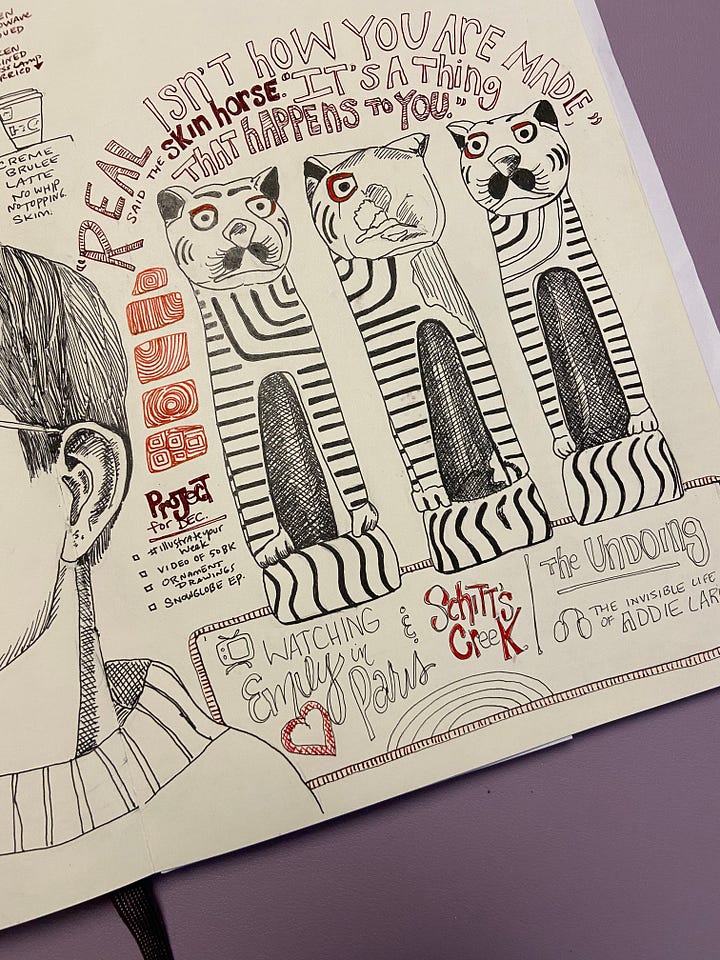 "REAL ISN'T HOW YOU ARE MADE,"
SAID THE SKIN HORSE. "IT'S A THING
THAT HAPPENS TO YOU."
CREME
BRULEE
LATTE
NO WHIP
NO TOPPING.
SKIM.
PROJECT
for DEC.
#illustrateyour
week
VIDEO OF SDBK
ORNAMENT
DRAWINGS
SNOWGLOBE EP.
WATCHING
Emily in Paris
&
SCHITT'S
CREEK
The UNDOING
THE INVISIBLE LIFE
OF ADDIE LAR